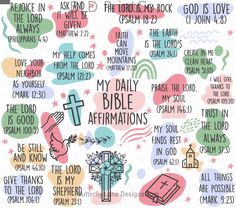 REJOICE
IN THE LORD
ALWAYS
(PHILIPPIANS 4:4)
ASK AND
IT WILL BE
GIVEN
(MATTHEW 7:7)
THE LORD IS MY ROCK
(PSALM 18:2)
GOD IS LOVE
(1 JOHN 4:8)
MY HELP COMES
FROM THE LORD
(PSALM 121:2)
FAITH
CAN
MOVE
MOUNTAINS
(MATTHEW 17:20)
THE EARTH
IS THE LORD'S
(PSALM 24:1)
CREATE IN ME
CLEAN HEART
(PSALM 51:10)
LOVE YOUR
NEIGHBOR
AS YOURSELF
(MARK 12:31)
MY DAILY
BIBLE
AFFIRMATIONS
PRAISE THE LORD,
MY SOUL
(PSALM 146:1)
I WILL GIVE
THANKS TO
THE LORD
THE LORD
IS GOOD
(PSALM 100:5)
TRUST IN
THE LORD
ALWAYS
BE STILL
AND KNOW
(PSALM 46:10)
MY SOUL
FINDS REST
IN GOD
(PSALM 62:1)
GIVE THANKS
TO THE LORD
(PSALM 106:1)
THE LORD
IS MY
SHEPHERD
(PSALM 23:1)
ALL THINGS
ARE POSSIBLE
(MARK 9:23)